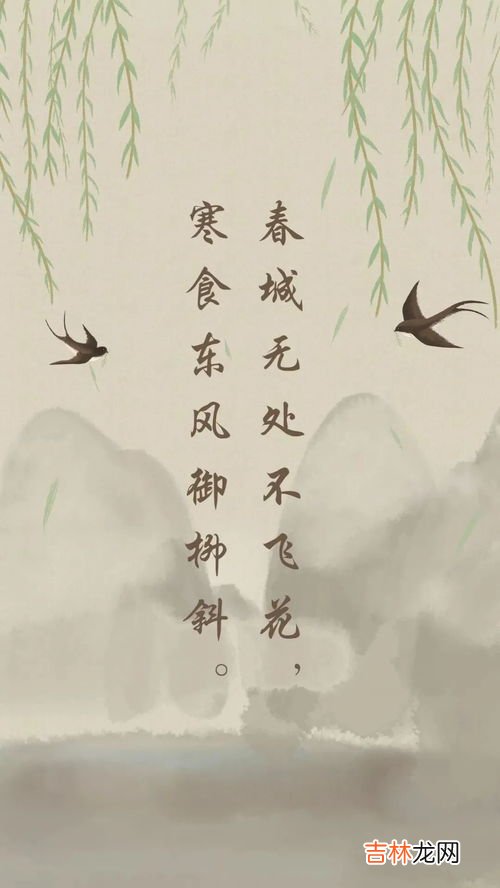 春城无处不飞花，
寒食东风御柳斜。
吉林龙网